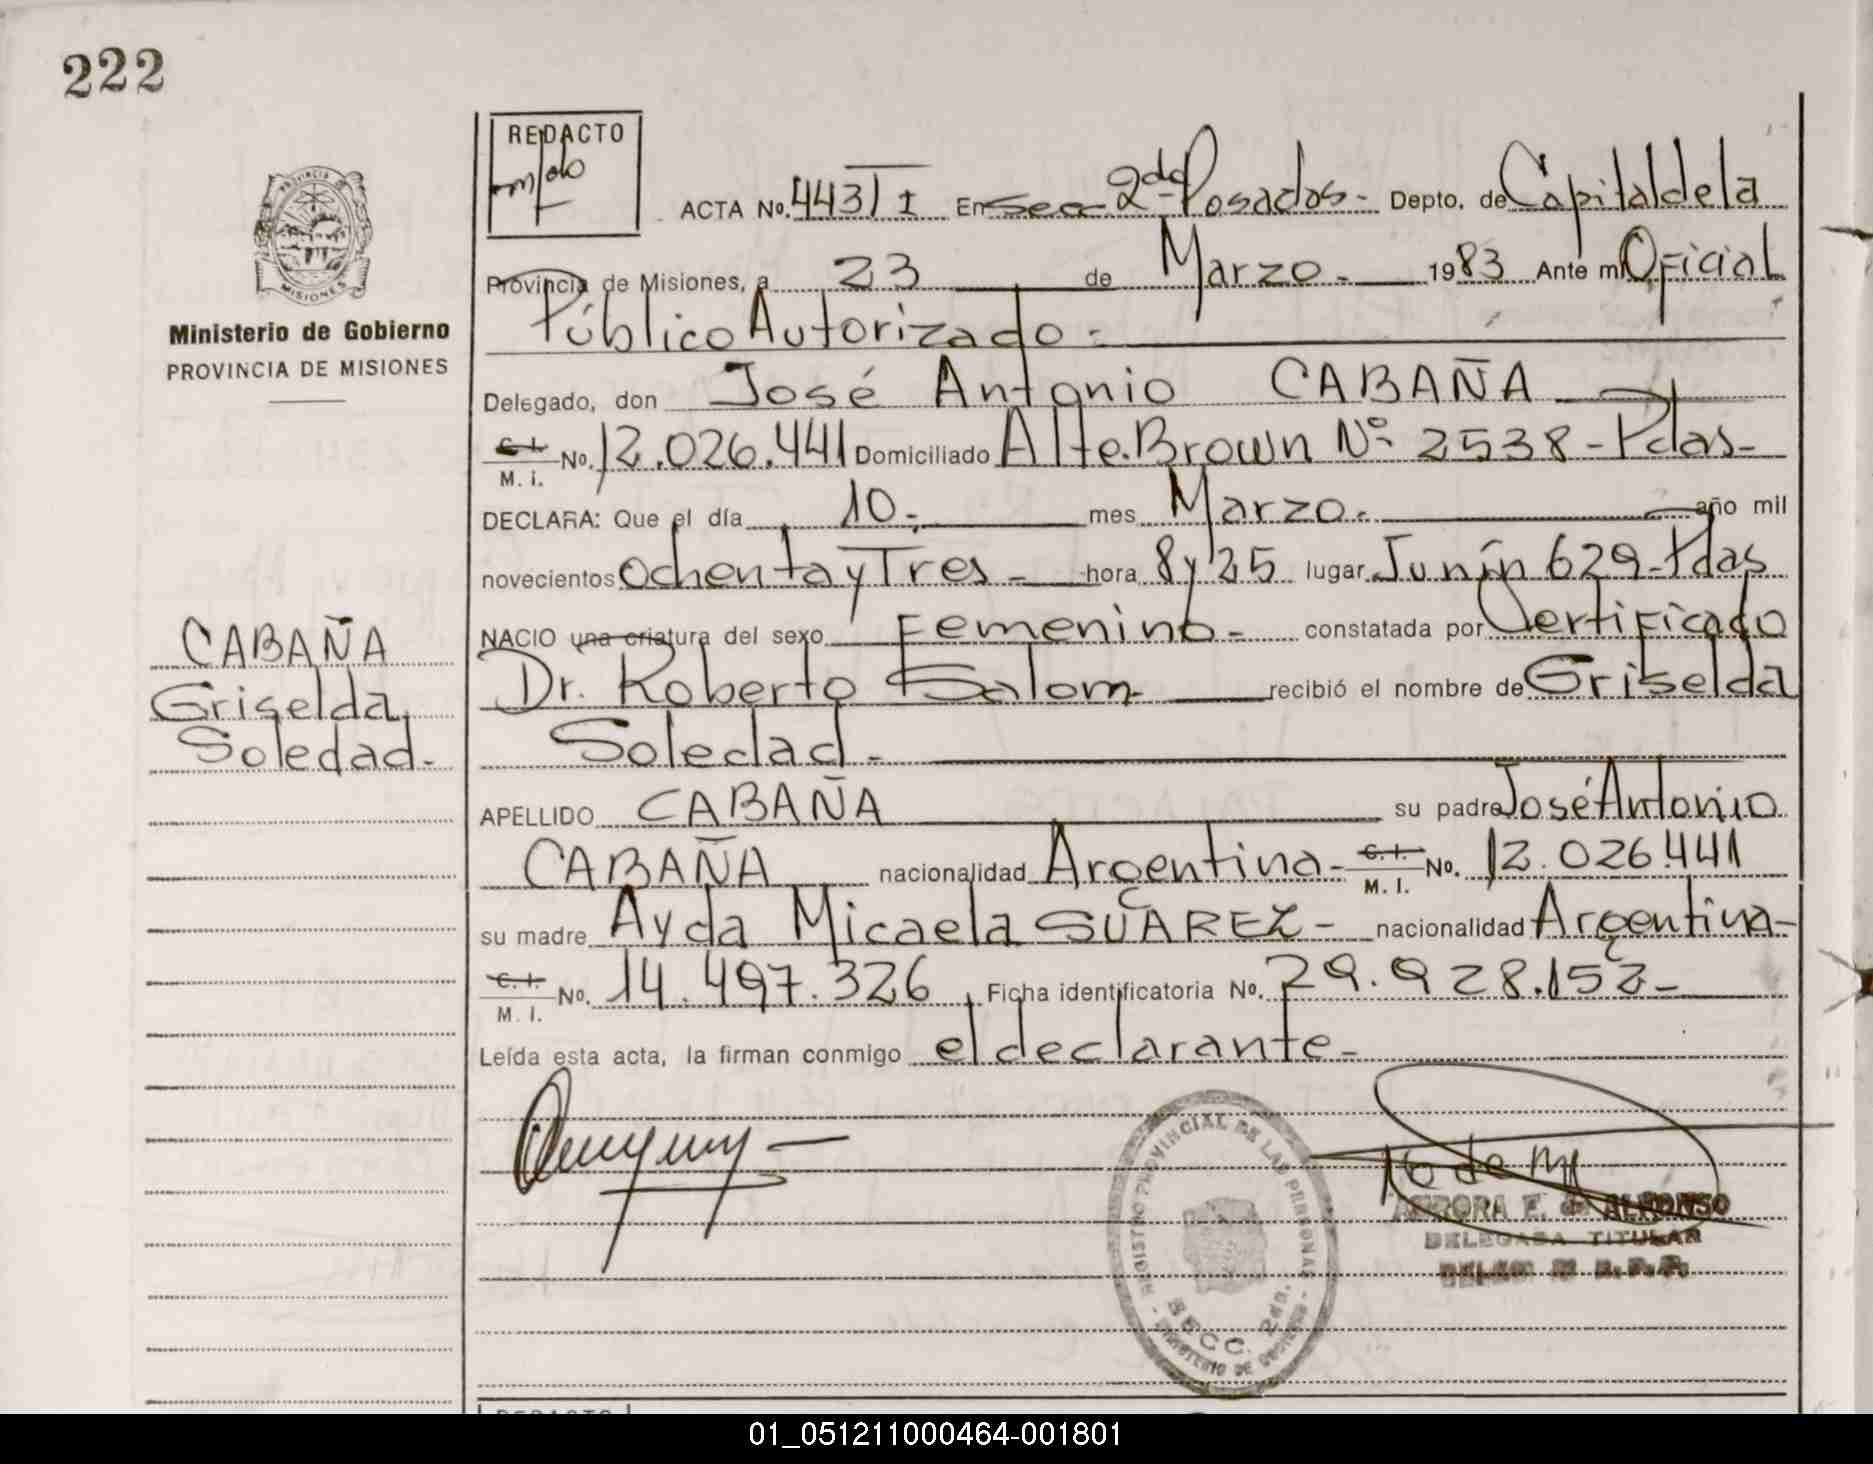 222
REDACTO
ACTA No. 443 T I En Sec 2da Posadas - Depto. de Capital de la
Provincia de Misiones, a 23 de Marzo - 1983 Ante mi Oficial
Público Autorizado -
Ministerio de Gobierno
PROVINCIA DE MISIONES
Delegado, don José Antonio CABAÑA
C.I. M. I. No. 12.026.441 Domiciliado Alte. Brown Nº 2538 - Pdas -
DECLARA: Que el día 10 - mes Marzo - año mil
novecientos Ochenta y Tres - hora 8 y 25 lugar Junín 629 - Pdas
NACIO una criatura del sexo Femenino - constatada por Certificado
Dr. Roberto Salom recibió el nombre de Griselda
Soledad -
CABAÑA
Griselda
Soledad -
APELLIDO CABAÑA su padre José Antonio
CABAÑA nacionalidad Argentina - C.I. M. I. No. 12.026.441
su madre Ayda Micaela SUAREZ - nacionalidad Argentina -
C.I. M. I. No. 14.497.326, Ficha identificatoria No. 29.928.152 -
Leída esta acta, la firman conmigo el declarante -
REGISTRO PROVINCIAL DE LAS PERSONAS
SECC. 2da.
MINISTERIO DE GOBIERNO
AURORA E. de ALFONSO
DELEGADA TITULAR
REDACTO
01_051211000464-001801